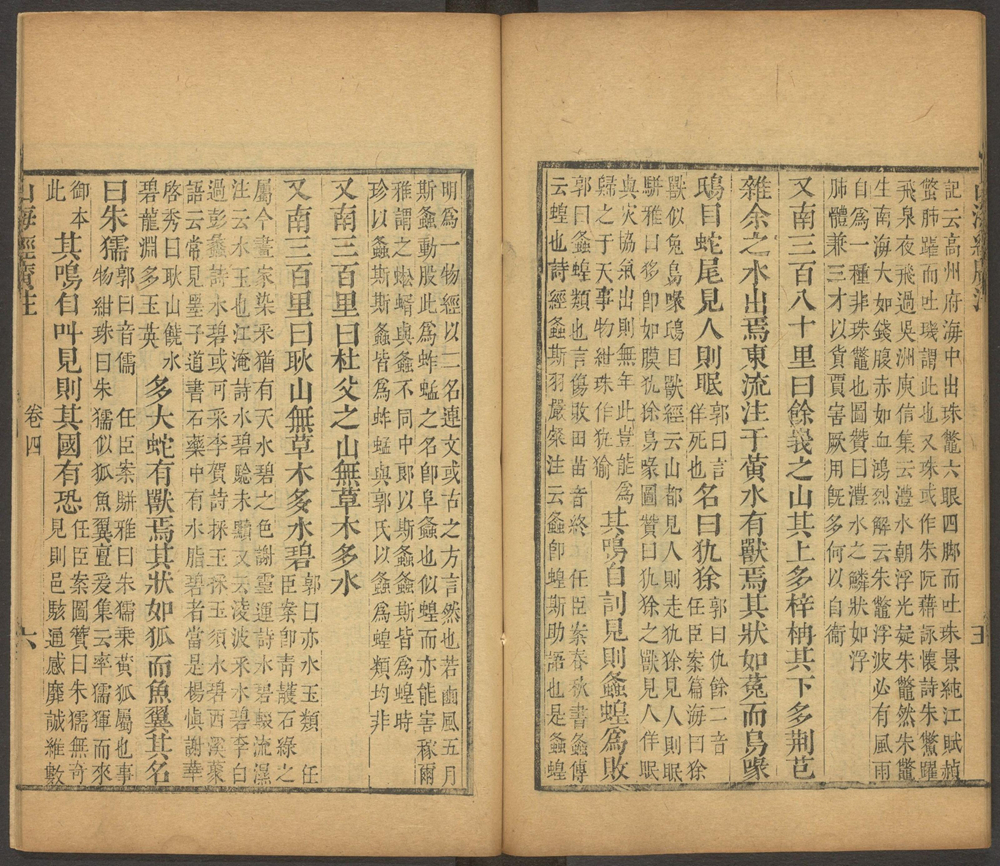 記云高州府海中出珠鼈六眼四脚而吐珠景純江賦赬
蟞肺躍而吐璣謂此也又珠或作朱阮藉詠懷詩朱鱉躍
飛泉夜飛過吳洲庾信集云澧水朝浮光疑朱鼈然朱鼈
生南海大如錢腹赤如血鴻烈解云朱鼈浮波必有風雨
自為一種非珠鼈也圖贊曰澧水之鱗狀如浮
肺體兼三才以貨賈害厥用旣多何以自衞
又南三百八十里曰餘峩之山其上多梓枬其下多荆芑
雜余之水出焉東流注于黃水有獸焉其狀如菟而鳥喙
鴟目蛇尾見人則眠
郭曰言
佯死也
名曰犰狳
郭曰仇餘二音
任臣案篇海曰狳
獸似兔鳥喙鴟目獸經云山都見人則走犰狳見人則眠
駢雅曰䄠即如膜犰狳鳥喙圖贊曰犰狳之獸見人佯眠
與災協氣出則無年此豈能為
歸之于天事物紺珠作犰㺄
其鳴自訓見則螽蝗為敗
郭曰螽蝗類也言傷敗田苗音終 任臣案春秋書螽傳
云螽蝗也詩經螽斯羽嚴粲注云螽卽蝗斯助語也是螽蝗
明為一物經以二名連文或古之方言然也若豳風五月
斯螽動股此為蚱蜢之名卽阜螽也似蝗而亦能害稼爾
雅謂之蜙蝑與螽不同中郞以斯螽螽斯皆為蝗時
珍以螽斯斯螽皆為蚱蜢與郭氏以螽為蝗類均非
又南三百里曰杜父之山無草木多水
又南三百里曰耿山無草木多水碧
郭曰亦水玉類 任
臣案卽靑䕶石綠之
屬今畫家染采猶有天水碧之色謝靈運詩水碧輟流溫
注云水玉也江淹詩水碧驗未黷又云淩波采水碧李白
過彭蠡詩水碧或可采李賀詩採玉採玉須水碧西溪叢
語云常見墨子道書石藥中有水脂碧者當是楊愼謝華
啓秀曰耿山饒水
碧龍淵多玉英
多大蛇有獸焉其狀如狐而魚翼其名
曰朱獳
郭曰音儒 任臣案駢雅曰朱獳乘黃狐屬也事
物紺珠曰朱獳似狐魚翼亶爰集云率獳㺦而來
御本
此
其鳴自叫見則其國有恐
任臣案圖贊曰朱獳無奇
見則邑駭通感靡誠維數
山海經廣注
卷四
六